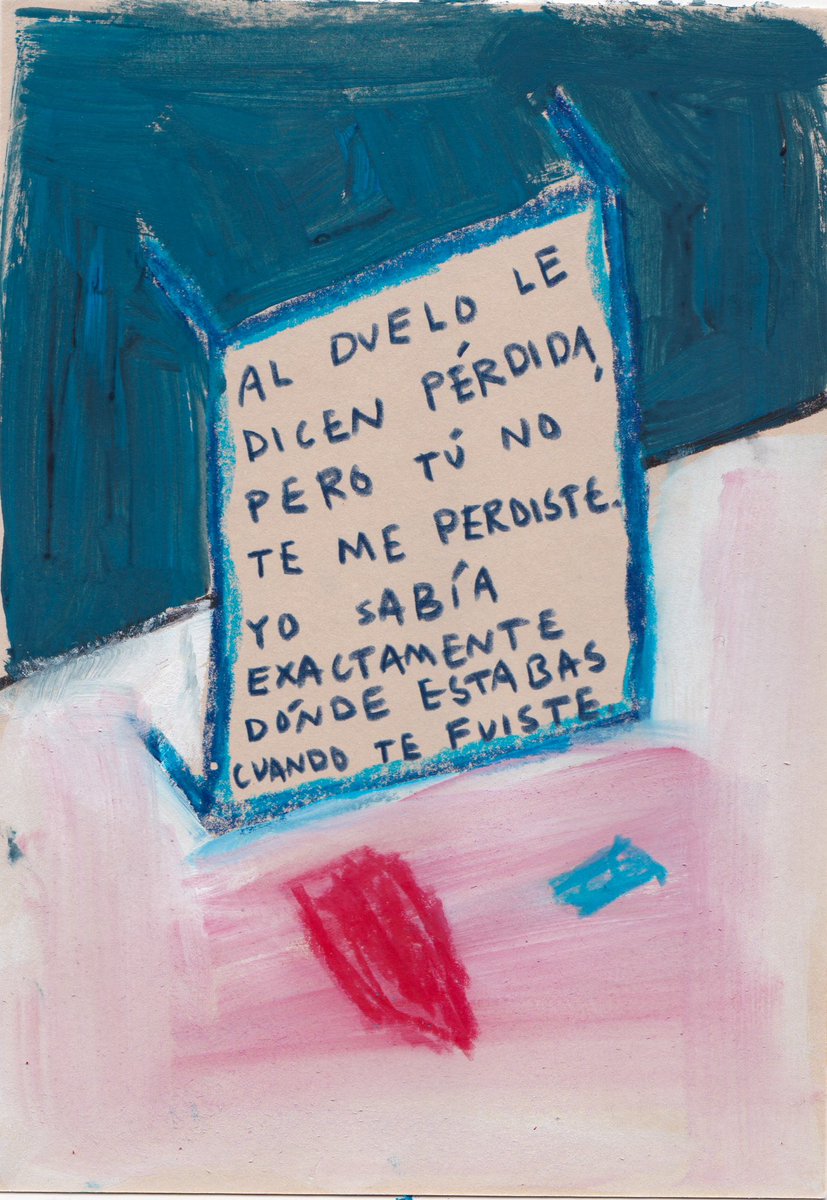 AL DUELO LE
DICEN PÉRDIDA,
PERO TÚ NO
TE ME PERDISTE.
YO SABÍA
EXACTAMENTE
DÓNDE ESTABAS
CUANDO TE FUISTE.